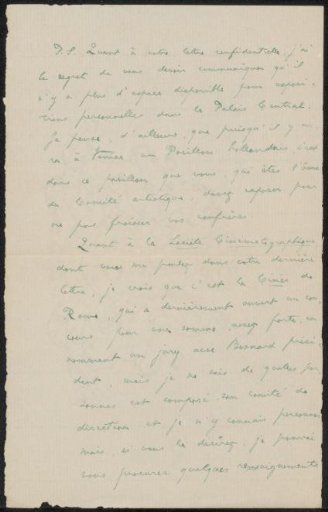 P.S. Quant à votre lettre confidentielle, j'ai
le regret de vous devoir communiquer qu'il
n'y a plus d'espace disponible pour exposi-
tions personnelles dans le Palais Central.
Je pense, d'ailleurs, que puisqu'il y au-
ra à Venise un Pavillon hollandais, c'est
dans ce pavillon que vous, que êtes l'âme
du Comité artistique, devez exposer pour
ne pas froisser vos confrères.
Quant à la Société Cinématographique
dont vous me parlez dans votre dernière
lettre, je crois que c'est la Cinès de
Rome, qui a dernièrement ouvert un con-
cours pour une somme assez forte, en
nommant un jury avec Besnard prési-
dent, mais je ne sais de quelles per-
sonnes est composé son comité de
direction et je n'y connais personne
mais, si vous le désirez, je pourrai
vous procurer quelques renseignements